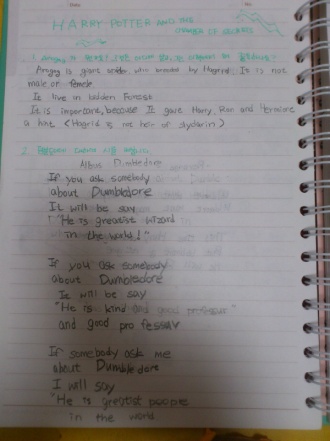 Date
No
HARRY POTTER AND THE
CHAMBER OF SECRETS
1. Aragog
Aragog is giant spider, who breeded by Hagrid. It is not
male or female
It live in bidden Forest
It is important, because It gave Harry, Ron and Hermione
a hint (Hagrid is not heir of slydarin)
2.
Albus Dumbledore
If you ask somebody
about Dumbledore
It will be say
"He is greatest wizard
in the world!"
If you ask somebody
about Dumbledore
It will be say
"He is kind and good professor"
and good professar
If somebody ask me
about Dumbledore
I will say
"He is greatest people
in the world